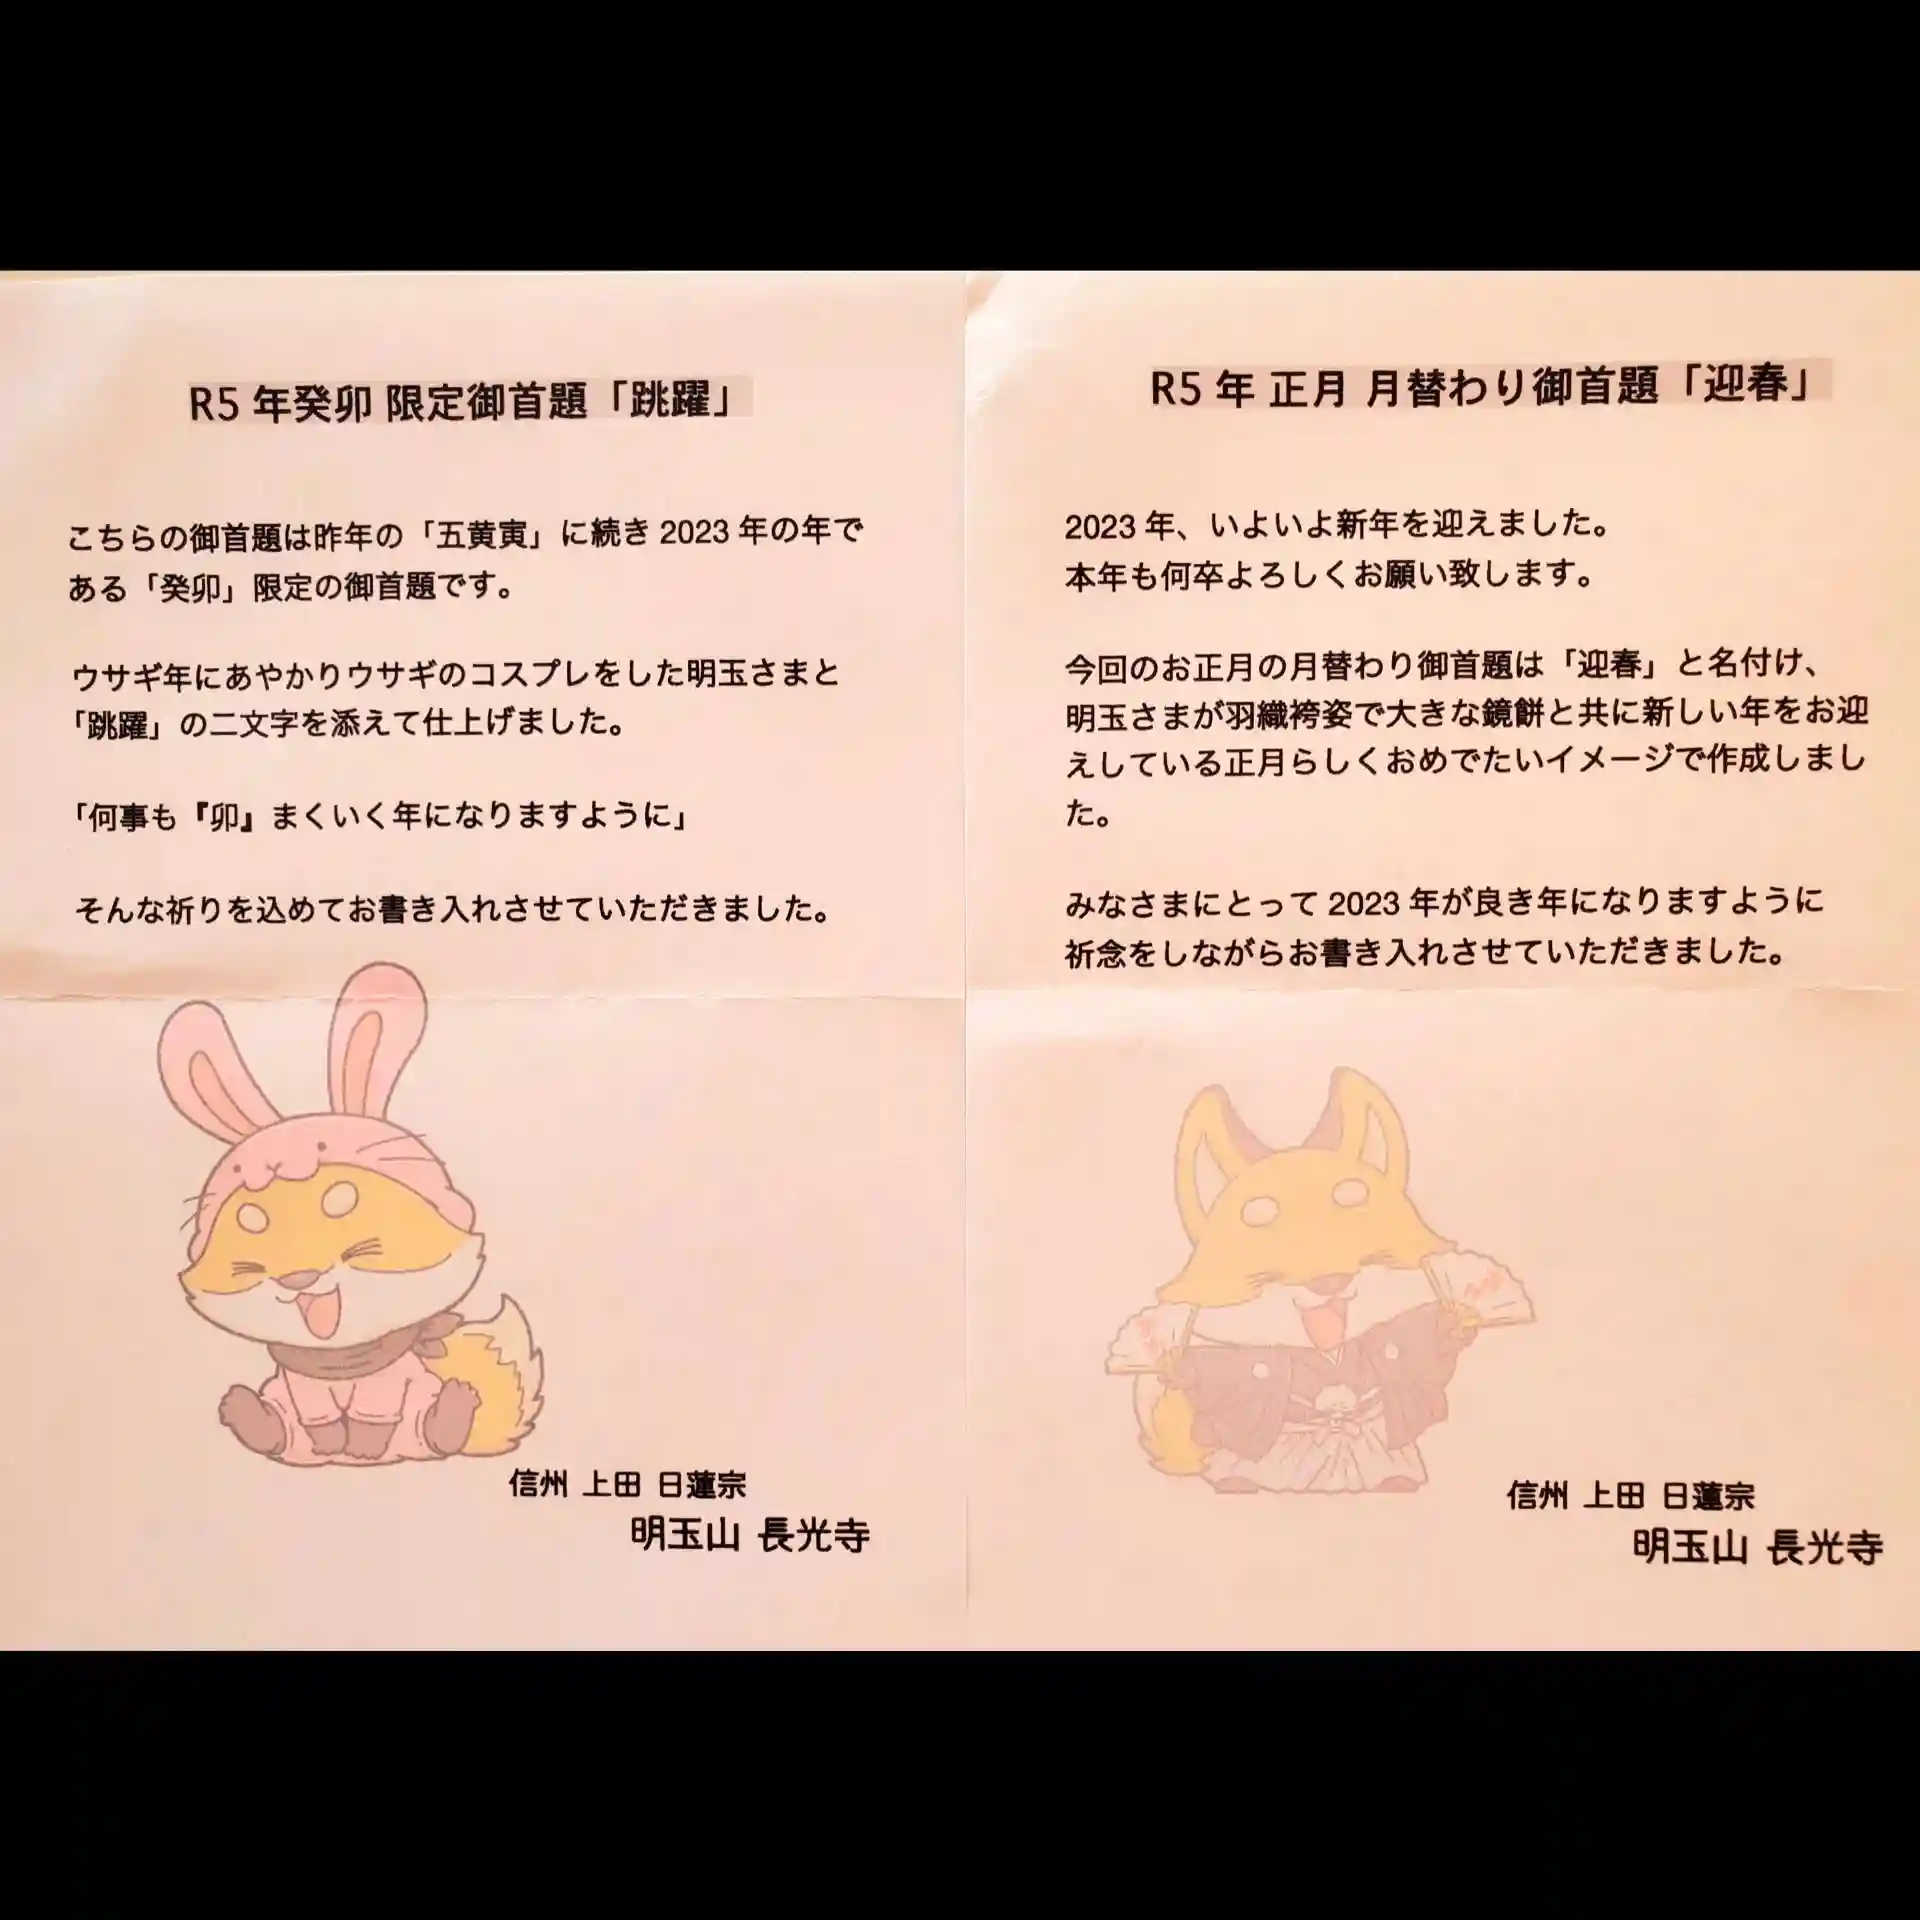 R5 年癸卯 限定御首題「跳躍」
こちらの御首題は昨年の「五黄寅」に続き 2023 年の年で
ある「癸卯」限定の御首題です。
ウサギ年にあやかりウサギのコスプレをした明玉さまと
「跳躍」の二文字を添えて仕上げました。
「何事も『卯』まくいく年になりますように」
そんな祈りを込めてお書き入れさせていただきました。
信州 上田 日蓮宗
明玉山 長光寺
R5 年 正月 月替わり御首題「迎春」
2023 年、いよいよ新年を迎えました。
本年も何卒よろしくお願い致します。
今回のお正月の月替わり御首題は「迎春」と名付け、
明玉さまが羽織袴姿で大きな鏡餅と共に新しい年をお迎
えしている正月らしくおめでたいイメージで作成しまし
た。
みなさまにとって 2023 年が良き年になりますように
祈念をしながらお書き入れさせていただきました。
信州 上田 日蓮宗
明玉山 長光寺